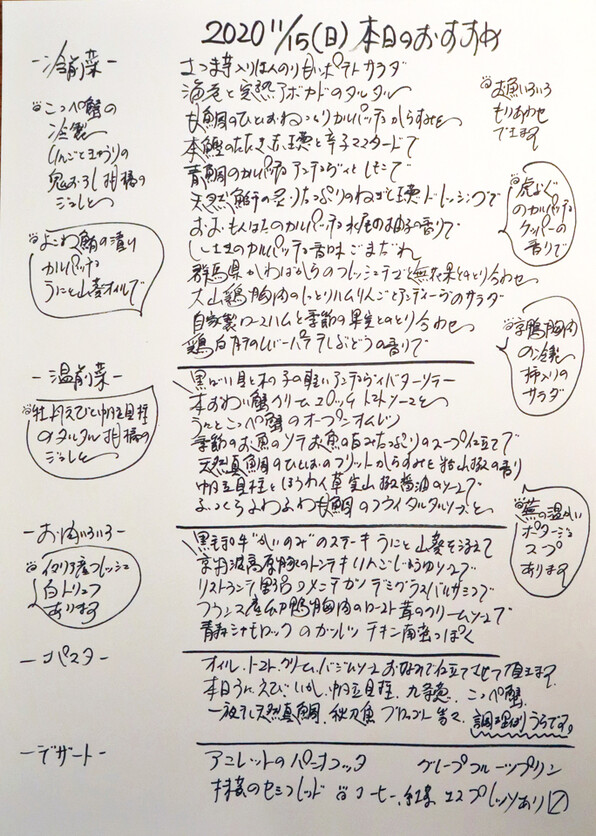 2020 11/15(日) 本日のおすすめ
-冷前菜-
こっぺ蟹の
冷製
りんごときゅうりの
鬼おろし 柑橘の
ジュレと
よこわ鮪の漬け
カルパッチョ
うにと山葵オイルで
さつま芋入りほんのり甘いポテトサラダ
海老と完熟アボカドのタルタル
甘鯛のひとしおねっとりカルパッチョからすみと
本鰹のたたき 赤玉葱と辛子マスタードで
青鯛のカルパッチョ アンチョヴィとしそで
天然鰤の炙りたっぷりのねぎと玉葱ドレッシングで
おおもんはたのカルパッチョ 水尾の柚子の香りで
しまあじのカルパッチョ 香味ごまだれ
群馬県かわばからのフレッシュチーズと無花果とのとり合わせ
大山鶏胸肉のしっとりハムりんごとアンディーヴのサラダ
自家製ロースハムと季節の果実とのとり合わせ
鶏白肝のレバーパテ干しぶどうの香りで
お魚いろいろ
もりあわせ
できます
虎ふぐ
のカルパッチョ
ケッパーの
香りで
鴨胸肉
の冷製
柿入りの
サラダ
-温前菜-
牡丹えびと帆立貝柱
のタルタル 柑橘の
ジュレと
黒ばい貝と木の子の軽いアンチョヴィバターソテー
本ずわい蟹クリームコロッケ トマトソースと
うにとこっぺ蟹のオープンオムレツ
季節のお魚のソテーお魚の白みたっぷりのスープ仕立てで
天然真鯛のひとしおのフリットからすみと粉山椒の香り
帆立貝柱とほうれん草 実山椒醤油のソースで
ふっくらふわふわ甘鯛のフライタルタルソースと
蕪の温かい
ポタージュ
スープ
あります
-お肉いろいろ-
イタリア産フレッシュ
白トリュフ
あります
黒毛和牛"かいのみ"のステーキ うにと山葵を添えて
京丹波高原豚のトンテキ りんごしょうゆソースで
リストランテ野呂のメンチカツ デミグラスバルサミコで
フランス産 鴨胸肉のロースト 茸のクリームソースで
青森シャモロックのカツレツ チキン南蛮っぽく
-パスタ-
オイル、トマト、クリーム、バジルソース お好みで仕立てさせて頂きます。
本日うに、えび、いか、帆立貝柱、九条葱、こっぺ蟹、
一放し天然真鯛、秋刀魚 ブロッコリー 等々、調理ほうらです。
-デザート-
アニレットのパンナコッタ グレープフルーツプリン
抹茶のセミフレッド コーヒー、紅茶 エスプレッソあり〼